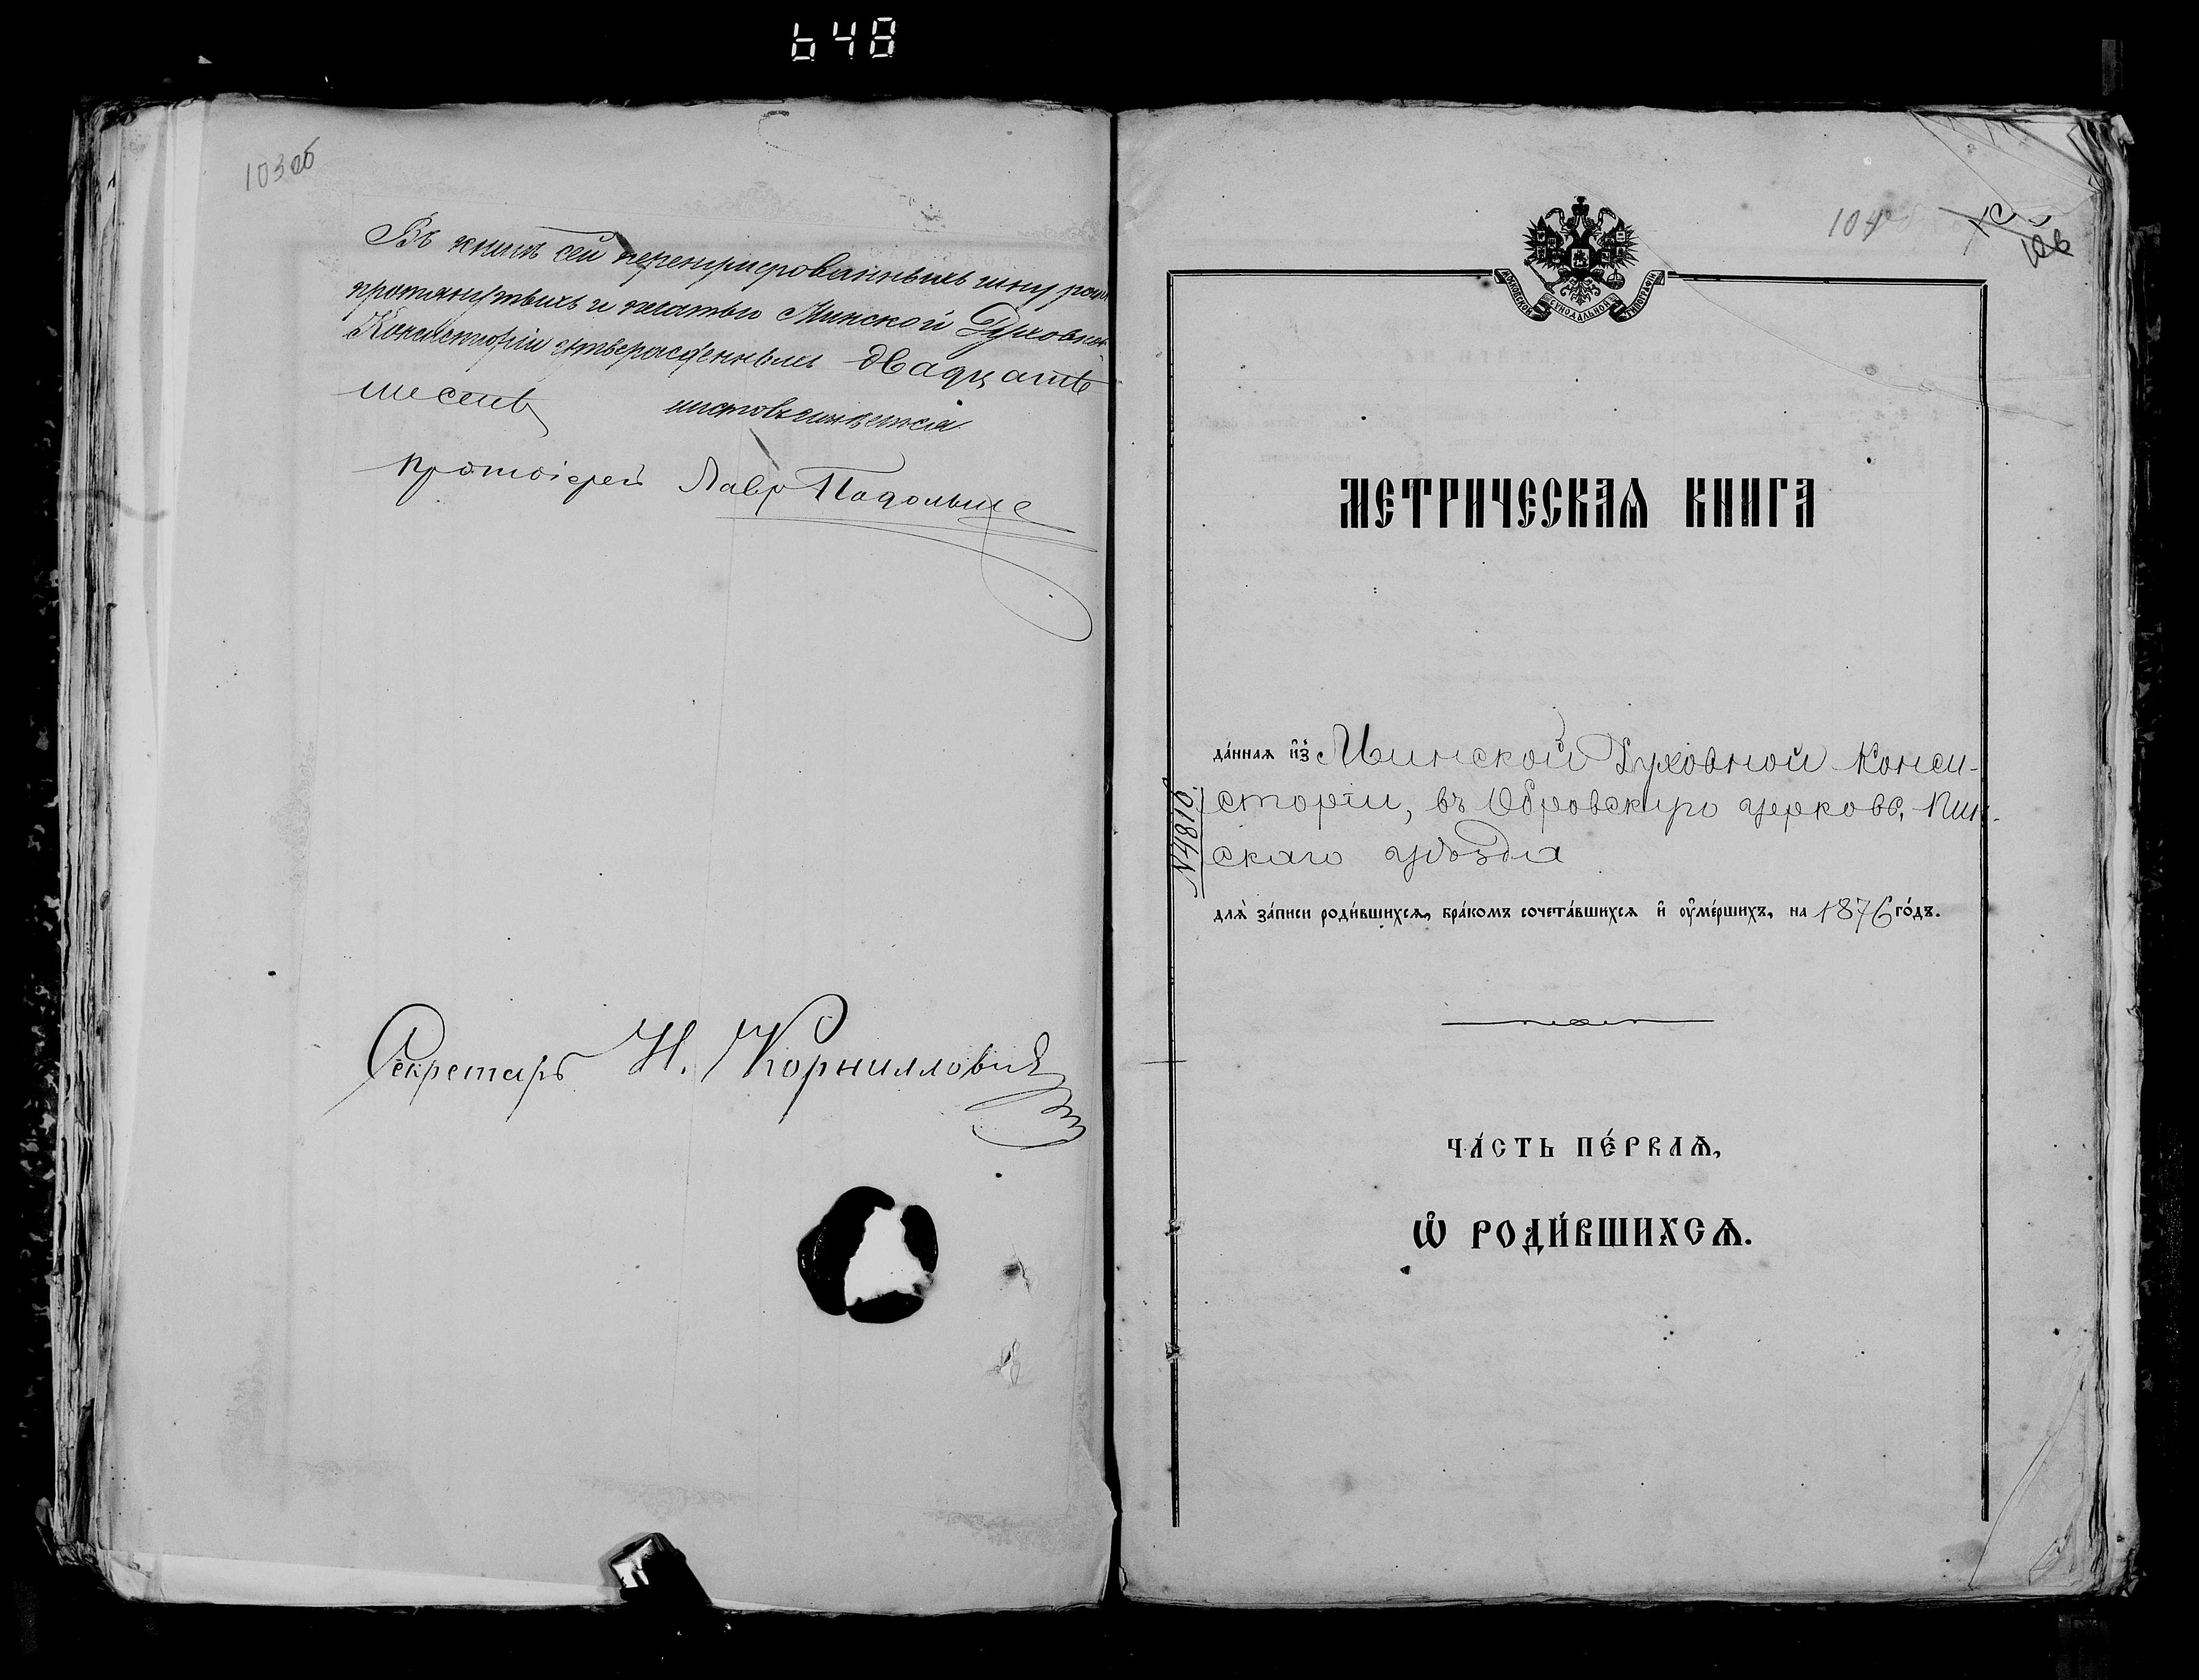 648
103 об
Въ книгѣ сей перенумерованныхъ шнуромъ
протянутыхъ и печатью Минской Духовной
Консисторіи утвержденныхъ двадцать
шесть листовъ имѣется
Протоіерей Лавръ
Секретарь Н. Корниллович
104
МОСКОВСКОЙ СѴНОДАЛЬНОЙ ТИПОГРАФІИ
МЕТРИЧЕСКАѦ КНИГА
да́ннаѧ и҆зъ Минской Духовной Конси-
сторіи, въ Обровскую церковь, Пин-
скаго уѣзда
№4810
длѧ̀ за́писи роди́вшихсѧ, бра́комъ сочета́вшихсѧ и҆ ᲂу҆ме́ршихъ, на 1876 го́дъ.
ЧА́СТЬ ПЕ́РВАѦ,
Ѡ҆ РОДИ́ВШИХСѦ.